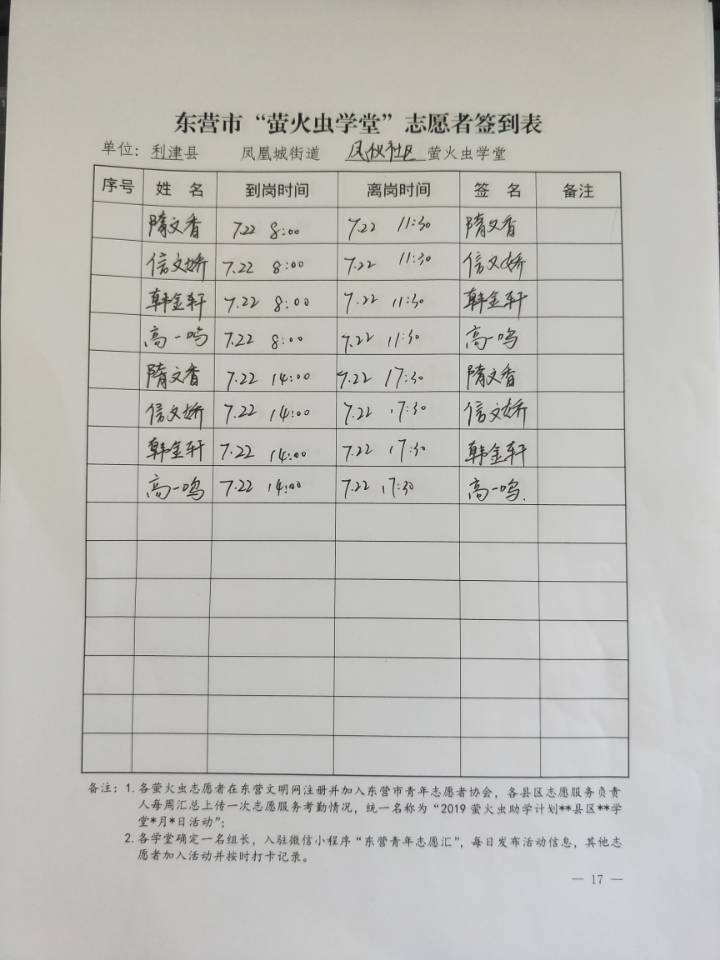 东营市“萤火虫学堂”志愿者签到表
单位：利津县 凤凰城街道 凤仪社区 萤火虫学堂
序号 姓 名 到岗时间 离岗时间 签 名 备注
隋文香 7.22 8:00 7.22 11:30 隋文香
信文娇 7.22 8:00 7.22 11:30 信文娇
韩金轩 7.22 8:00 7.22 11:30 韩金轩
高一鸣 7.22 8:00 7.22 11:30 高一鸣
隋文香 7.22 14:00 7.22 17:30 隋文香
信文娇 7.22 14:00 7.22 17:30 信文娇
韩金轩 7.22 14:00 7.22 17:30 韩金轩
高一鸣 7.22 14:00 7.22 17:30 高一鸣.
备注：1.各萤火虫志愿者在东营文明网注册并加入东营市青年志愿者协会，各县区志愿服务负责
人每周汇总上传一次志愿服务考勤情况，统一名称为“2019 萤火虫助学计划**县区**学
堂*月*日活动”；
2.各学堂确定一名组长，入驻微信小程序“东营青年志愿汇”，每日发布活动信息，其他志
愿者加入活动并按时打卡记录。
— 17 —